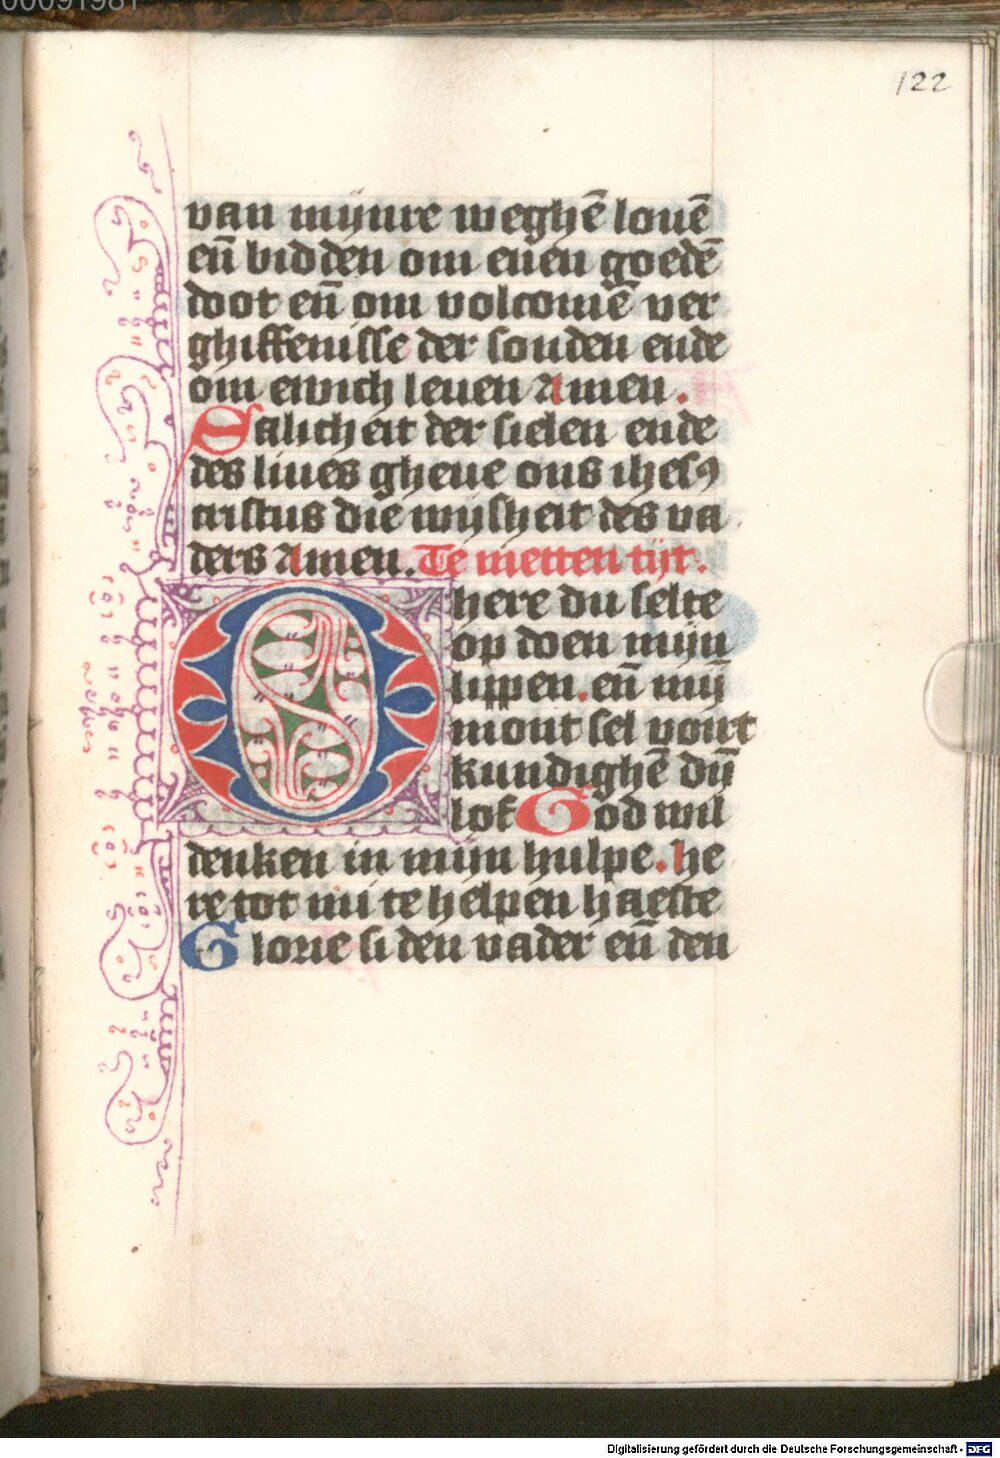 00091981
122
van mijnre weghē louē
eñ bidden om enen goedē
doot eñ om volcomē ver
ghiffenisse der sonden ende
om ewich leuen Amen.
Salicheit der sielen ende
des liues gheue ons ihesꝯ
cristus die wijsheit des va
ders Amen. Te metten tijt.
O here du selte
op doen mijn
lippen. eñ mij̄
mont sel vort
kundighē dij̄
lof God wil
denken in mijn hulpe. he
re tot mi te helpen haeste
Glorie si den vader eñ den
Digitalisierung gefördert durch die Deutsche Forschungsgemeinschaft - DFG